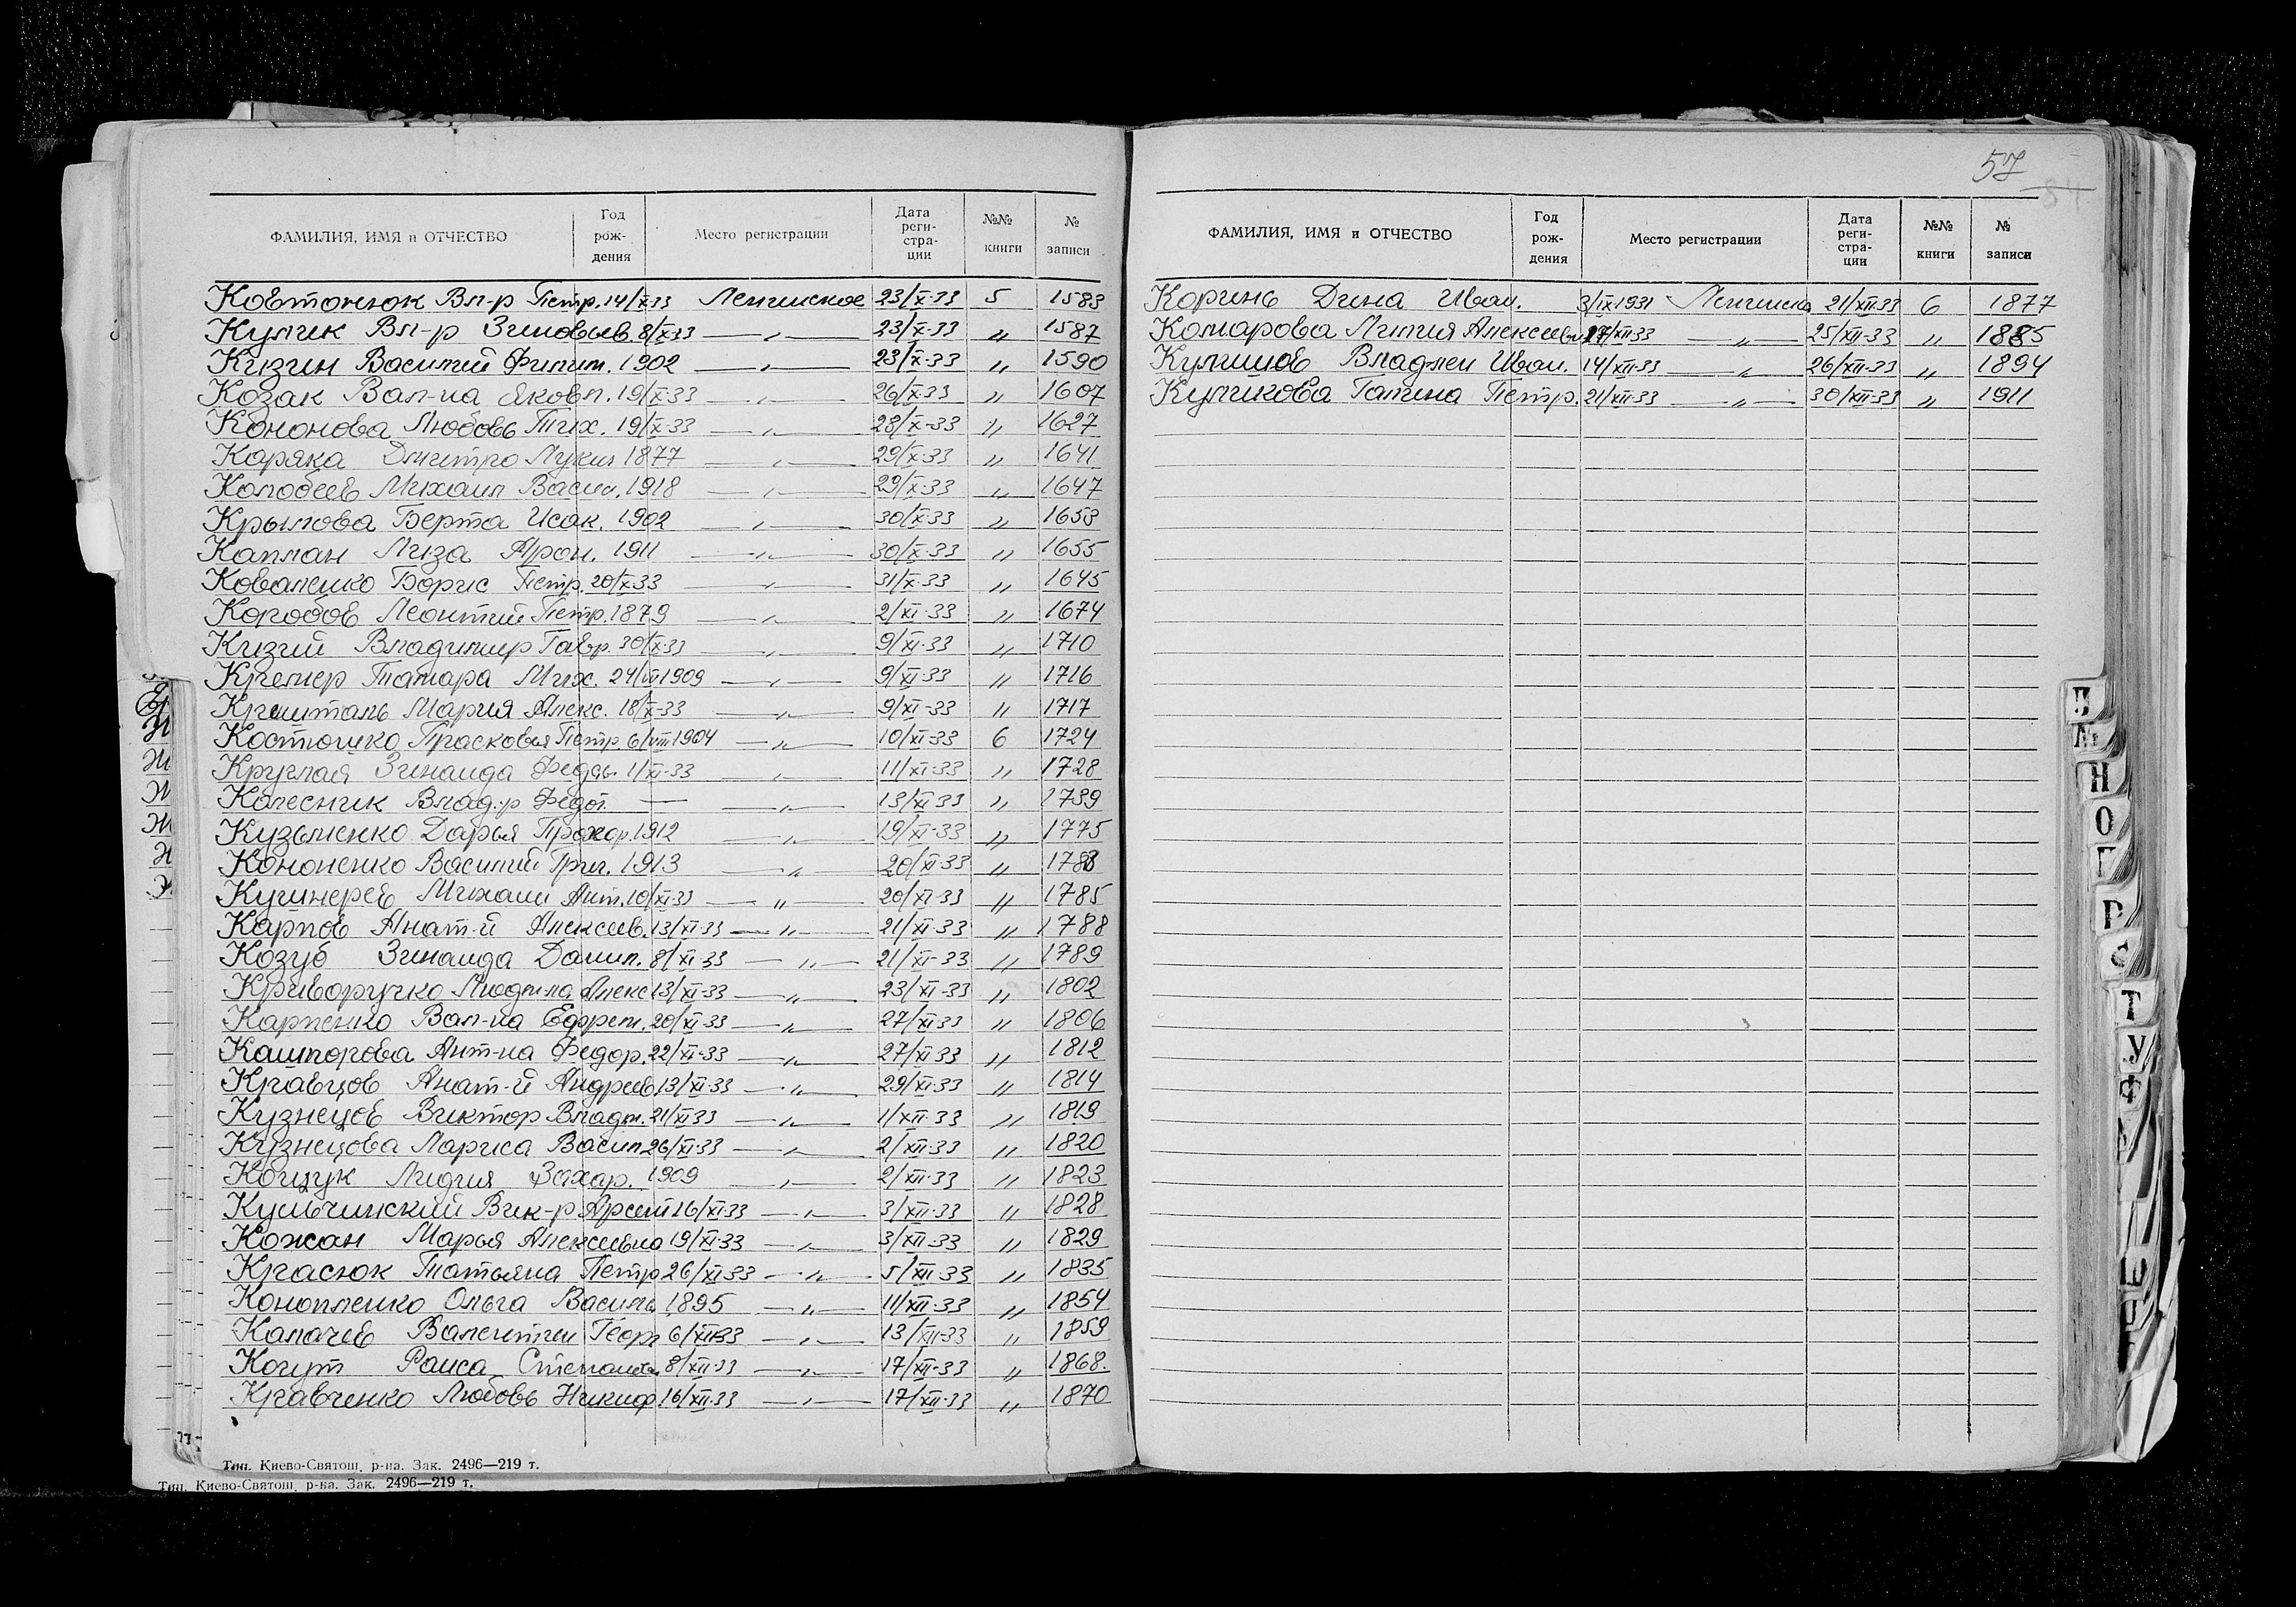 57
ФАМИЛИЯ, ИМЯ и ОТЧЕСТВО Год рож-дения Место регистрации Дата реги-стра-ции №№ книги № записи
Ковтонюк Вл-р Петр. 14/X-33 Ленинское 23/X-33 5 1583
Кулик Вл-р Зиновьев. 8/X-33 —"— 23/X-33 " 1587
Кизин Василий Филип. 1902 —"— 23/X-33 " 1590
Козак Вал-на Яковл. 19/X-33 —"— 26/X-33 " 1607
Кононова Любовь Тих. 19/X-33 —"— 28/X-33 " 1627
Коряка Дмитро Лукич 1877 —"— 29/X-33 " 1641
Колобеев Михаил Васил. 1918 —"— 29/X-33 " 1647
Крылова Берта Исак. 1902 —"— 30/X-33 " 1653
Каплан Лиза Арон. 1911 —"— 30/X-33 " 1655
Коваленко Борис Петр. 20/X-33 —"— 31/X-33 " 1645
Коробов Леонтий Петр. 1879 —"— 2/XI-33 " 1674
Кизий Владимир Гавр. 30/X-33 —"— 9/XI-33 " 1710
Кремер Тамара Мих. 24/VI 1909 —"— 9/XI-33 " 1716
Кришталь Мария Алекс. 18/X-33 —"— 9/XI-33 " 1717
Костюшко Прасковья Петр. 6/VIII 1904 —"— 10/XI-33 6 1724
Круглая Зинаида Федор. 1/XI-33 —"— 11/XI-33 " 1728
Колесник Влад-р Федот. — —"— 13/XI-33 " 1739
Кузьменко Дарья Прохор. 1912 —"— 19/XI-33 " 1775
Кононенко Василий Григ. 1913 —"— 20/XI-33 " 1783
Кушнерев Михаил Ант. 10/XI-33 —"— 20/XI-33 " 1785
Карпов Анат-й Алексеев. 13/XI-33 —"— 21/XI-33 " 1788
Козуб Зинаида Данил. 8/XI-33 —"— 21/XI-33 " 1789
Криворучко Людм-ла Алекс 13/XI-33 —"— 23/XI-33 " 1802
Карпенко Вал-на Ефрем. 20/XI-33 —"— 27/XI-33 " 1806
Кашпорова Ант-на Федор. 22/XI-33 —"— 27/XI-33 " 1812
Кравцов Анат-й Андреев. 13/XI-33 —"— 29/XI-33 " 1814
Кузнецов Виктор Владм. 21/XI-33 —"— 1/XII-33 " 1819
Кузнецова Лариса Васил 26/XI-33 —"— 2/XII-33 " 1820
Кощук Лидия Захар. 1909 —"— 2/XII-33 " 1823
Кульчинский Вик-р Арсен 16/XI-33 —"— 3/XII-33 " 1828
Кожан Марья Алексеевна 19/XI-33 —"— 3/XII-33 " 1829
Красюк Татьяна Петр 26/XI-33 —"— 5/XII-33 " 1835
Конопленко Ольга Василь 1895 —"— 11/XII-33 " 1854
Калачев Валентин Геор 6/XII-33 —"— 13/XII-33 " 1859
Когут Раиса Степанов 8/XII-33 —"— 17/XII-33 " 1868.
Кравченко Любовь Никиф 16/XII-33 —"— 17/XII-33 " 1870
Тип. Киево-Святош. р-на. Зак. 2496—219 т.
Тип. Киево-Святош. р-на. Зак. 2496—219 т.
ФАМИЛИЯ, ИМЯ и ОТЧЕСТВО Год рож-дения Место регистрации Дата реги-стра-ции №№ книги № записи
Коринь Дина Иван. 3/IX 1931 Ленинское 21/XII-33 6 1877
Комарова Лилия Алексеевн 17/XII-33 —"— 25/XII-33 " 1885
Кулишов Владлен Иван. 14/XII-33 —"— 26/XII-33 " 1894
Куликова Галина Петр. 21/XII-33 —"— 30/XII-33 " 1911
М
Н
О
П
Р
С
Т
У
Ф